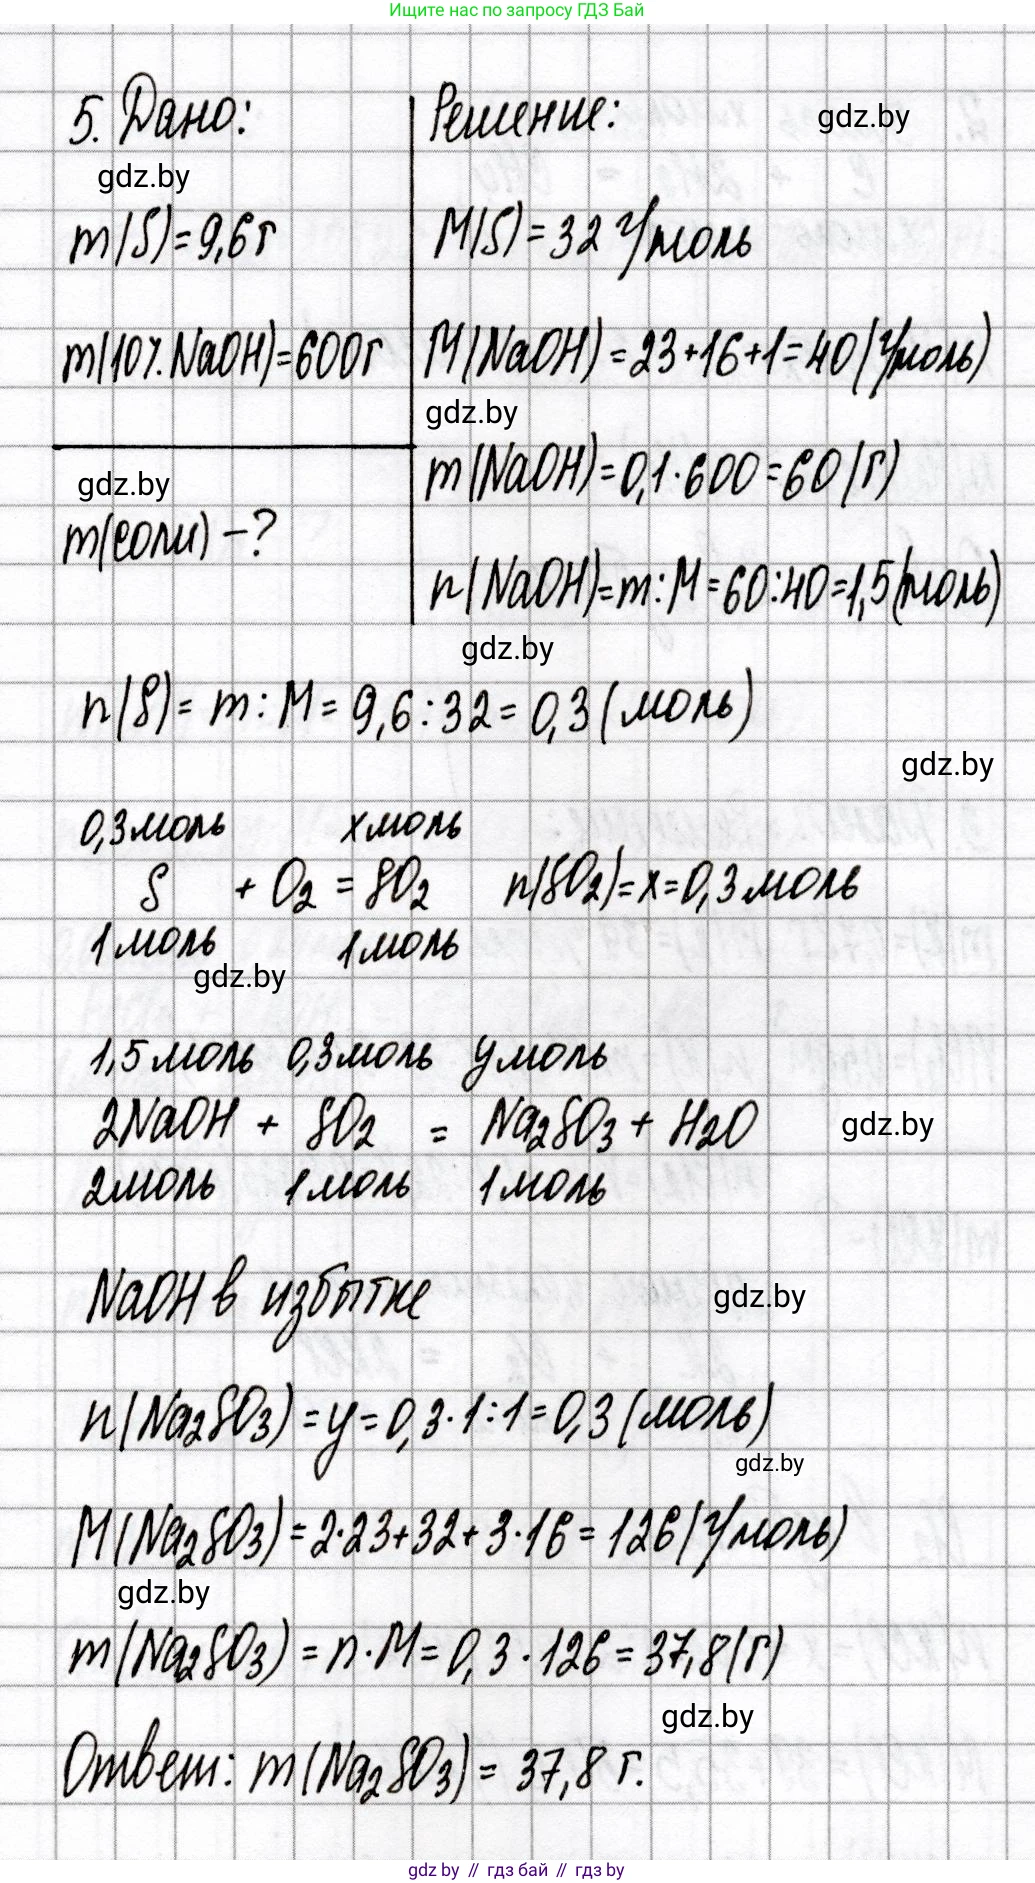 Ищите нас по запросу ГДЗ Бай
5. Дано:
gdz.by
m(S)=9,6г
m(10%.NaOH)=600г
gdz.by
m(соли) -?
Решение:
gdz.by
M(S)=32 г/моль
M(NaOH)=23+16+1=40(г/моль)
gdz.by
m(NaOH)=0,1·600=60(г)
n(NaOH)=m:M=60:40=1,5(моль)
gdz.by
n(S)= m:M=9,6:32=0,3(моль)
gdz.by
0,3моль хмоль
S + O2 = SO2 n(SO2)=x=0,3моль
1моль 1моль
gdz.by
1,5моль 0,3моль yмоль
2NaOH + SO2 = Na2SO3+ H2O
gdz.by
2моль 1моль 1моль
NaOH в избытке
gdz.by
n(Na2SO3)=y=0,3·1:1=0,3(моль)
gdz.by
M(Na2SO3)=2·23+32+3·16=126(г/моль)
gdz.by
m(Na2SO3)=n·M=0,3·126=37,8(г)
gdz.by
Ответ: m(Na2SO3)= 37,8 г.
gdz by // гдз бай // gdz by